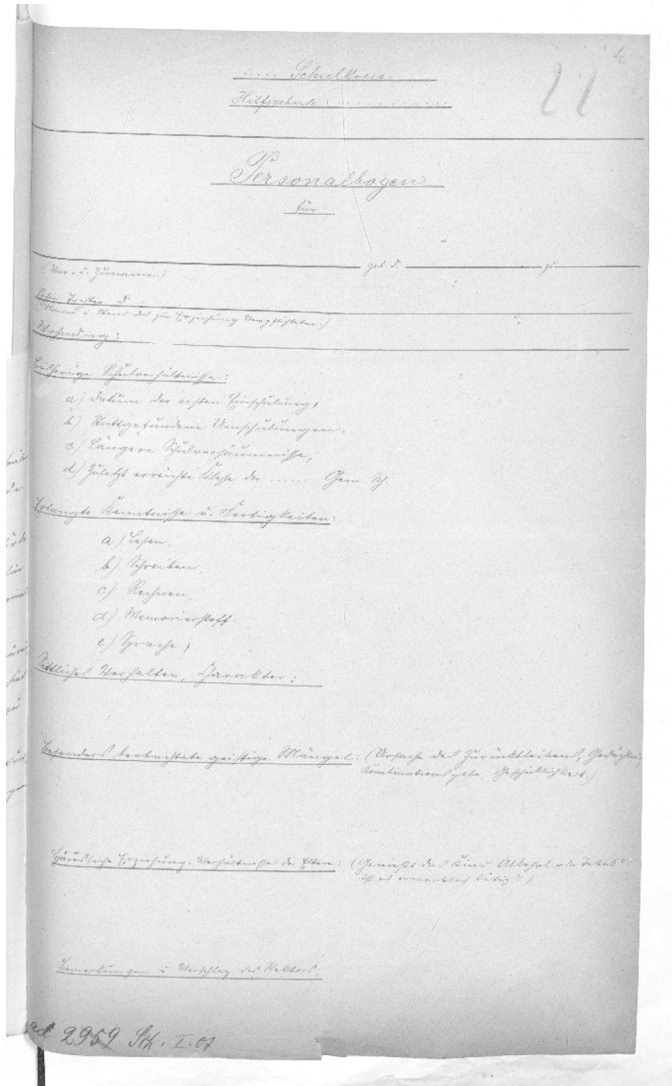 ..... Schulkreis
Hilfsschule: ............
21
Personalbogen
für
geb. d. zu
(Vor- u. Zunamen)
Sohn, Tochter d.
(Namen u. Stand des zur Erziehung Verpflichteten.)
Wohnung:
Bisherige Schulverhältnisse:
a) Datum der ersten Einschulung,
b) Stattgefundene Umschulungen,
c) Längere Schulversäumnisse,
d) Zuletzt erreichte Klasse der ...... Gem. Sch.
Erlangte Kenntnisse u. Fertigkeiten:
a) Lesen,
b) Schreiben,
c) Rechnen,
d) Memorierstoff.
e) Sprache,
Sittliches Verhalten, Charakter:
Besonders beobachtete geistige Mängel: (Ursache des Zurückbleibens, Gedächtnis,
Kombinationsgabe, Geschicklichkeit.)
Häusliche Erziehung, Verhältnisse der Eltern: (Genießt das Kind Alkohol oder Tabak?
Ist es erwerblich tätig?)
Bemerkungen u. Vorschlag des Rektors.
ad 2959 Sch. I. 07